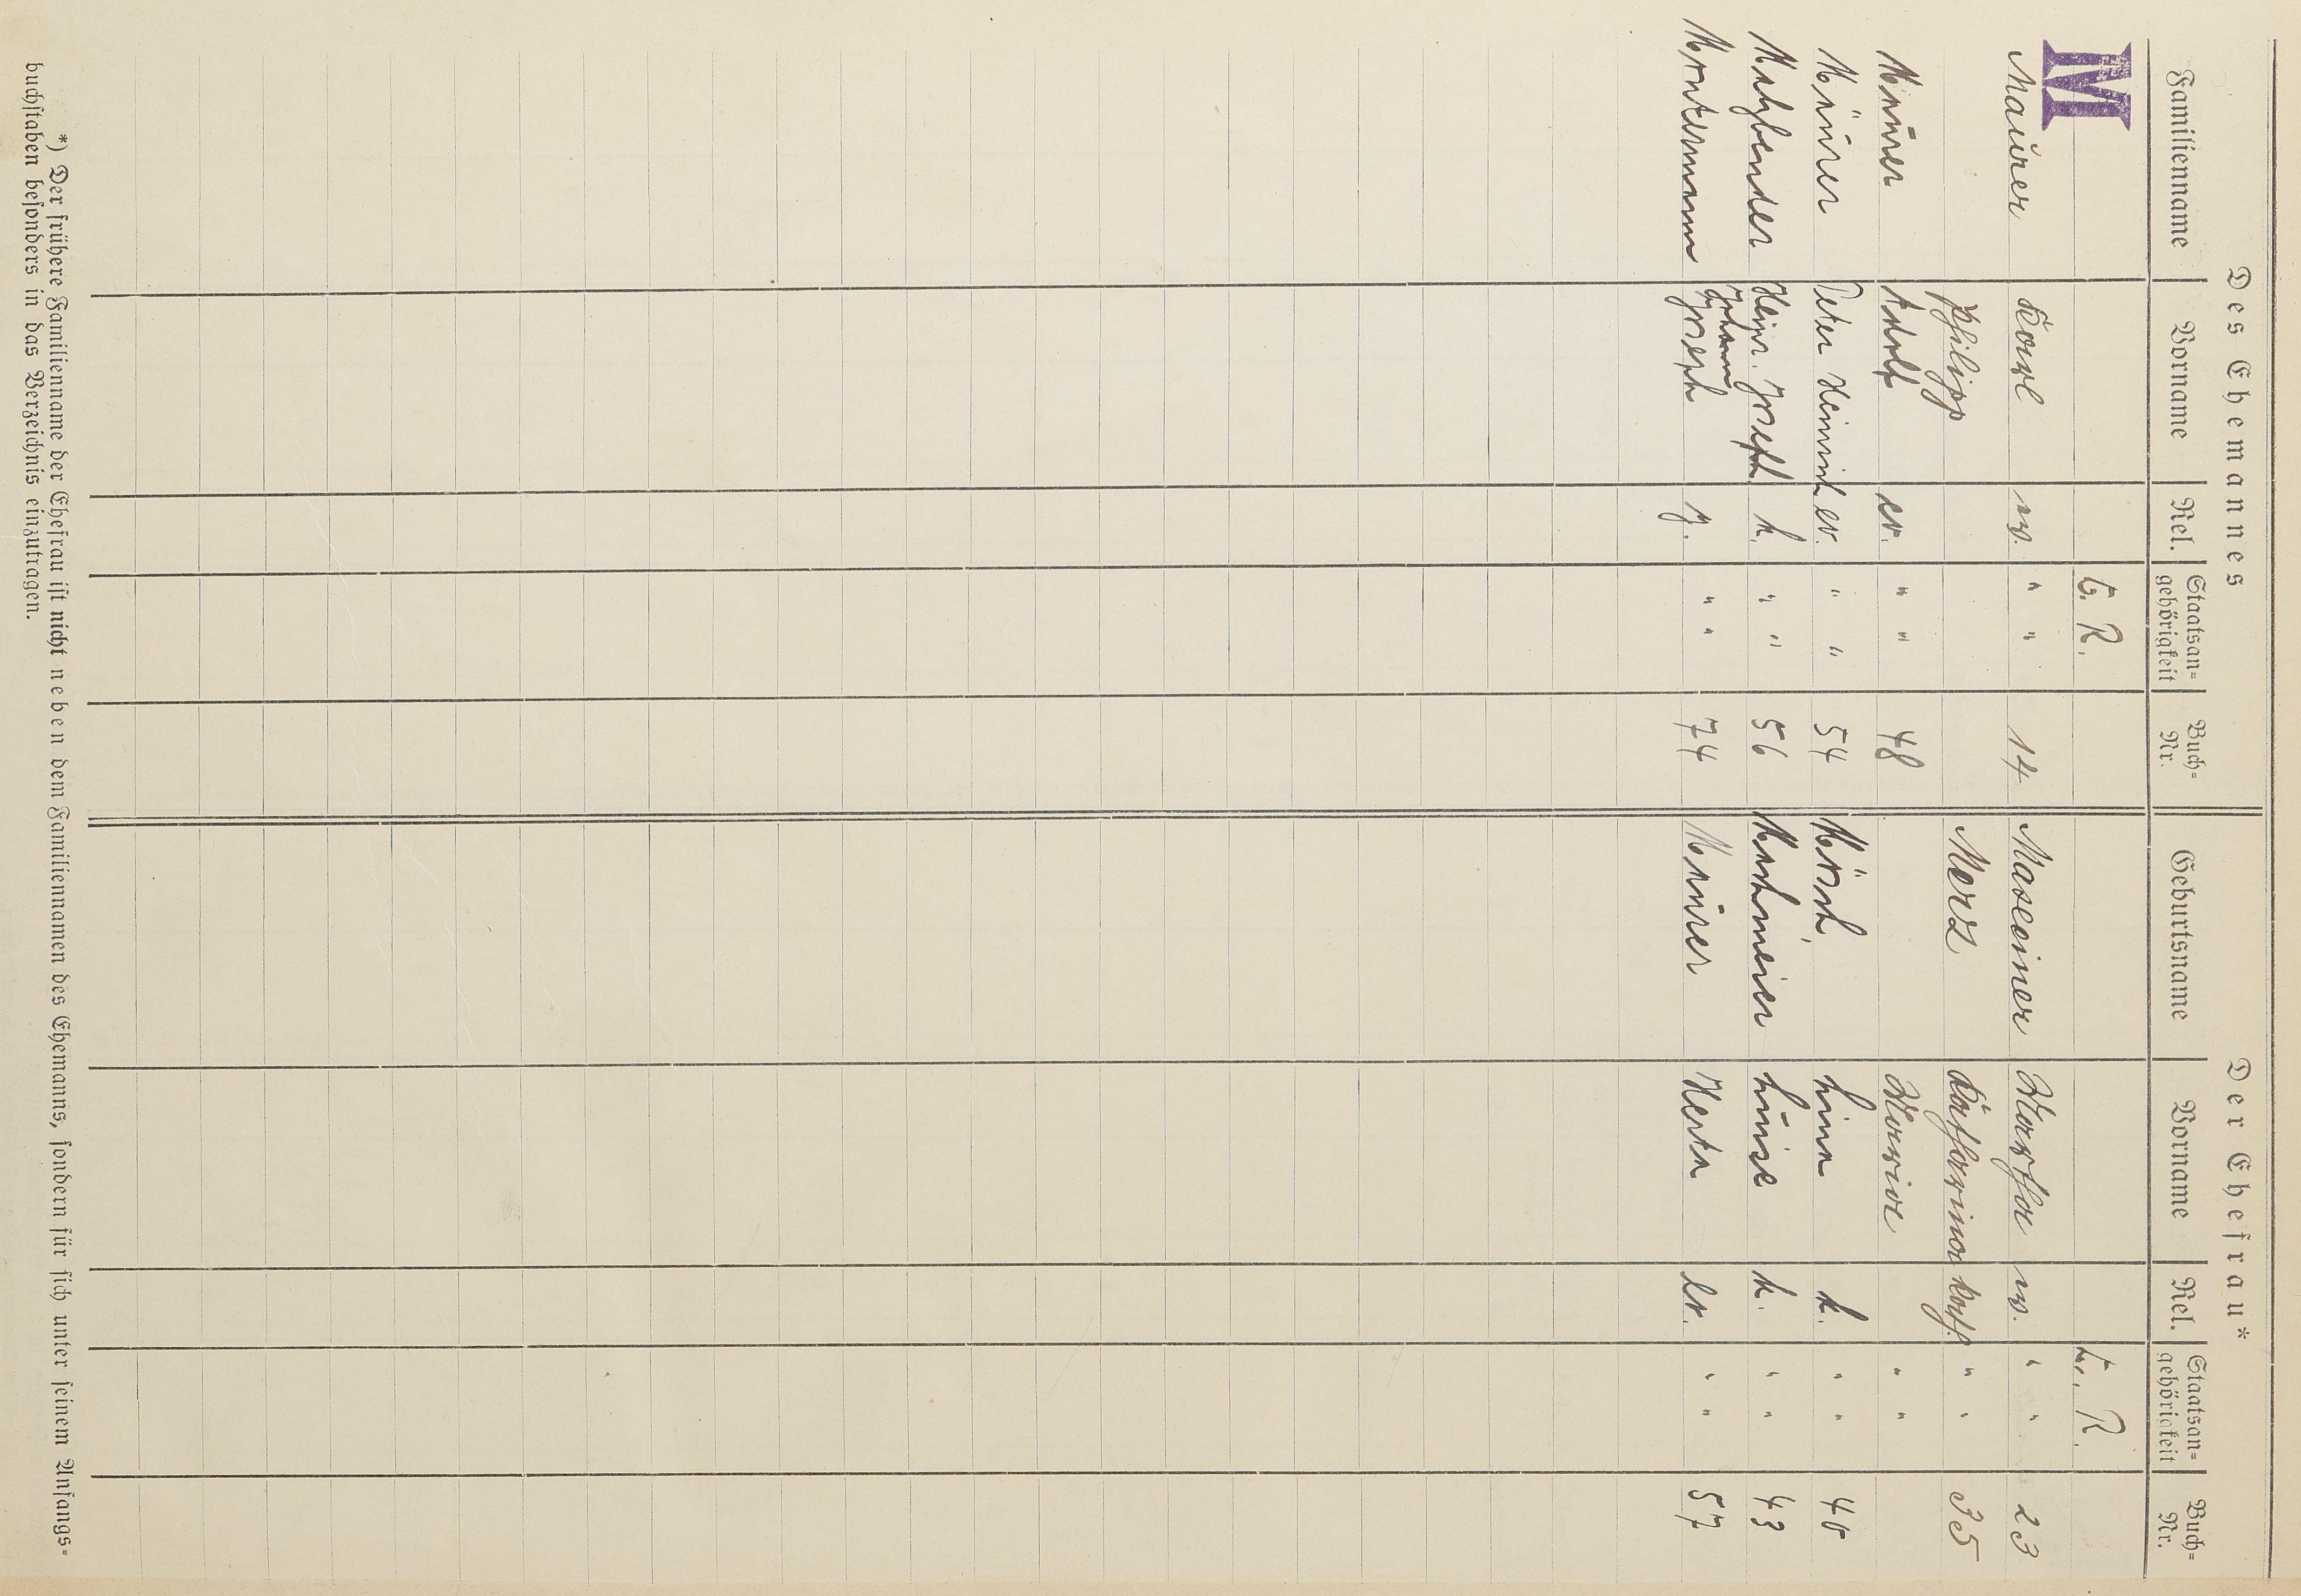 Des Ehemannes Der Ehefrau*
Familienname Vorname Rel. Staatsan= gehörigkeit Buch= Nr. Geburtsname Vorname Rel. Staatsan= gehörigkeit Buch= Nr.
M R. R.
Maurer Karl ev. " " 14 Maxeiner Martha ev. " " 23
Philipp Merz Katharina kath. " " 35
Maurer Adolf ev. " " 48 Maria " "
Mäurer Peter Heinrich ev. " " 54 Mörsch Lina k. " " 40
Malzbender Heinr. Joseph k. " " 56 Machmeier Luise k. " " 43
Johann
Montermann Joseph " " 74 Maurer Herta ev. " " 57
*) Der frühere Familienname der Ehefrau ist nicht neben dem Familiennamen des Ehemanns, sondern für sich unter seinem Anfangs=
buchstaben besonders in das Verzeichnis einzutragen.